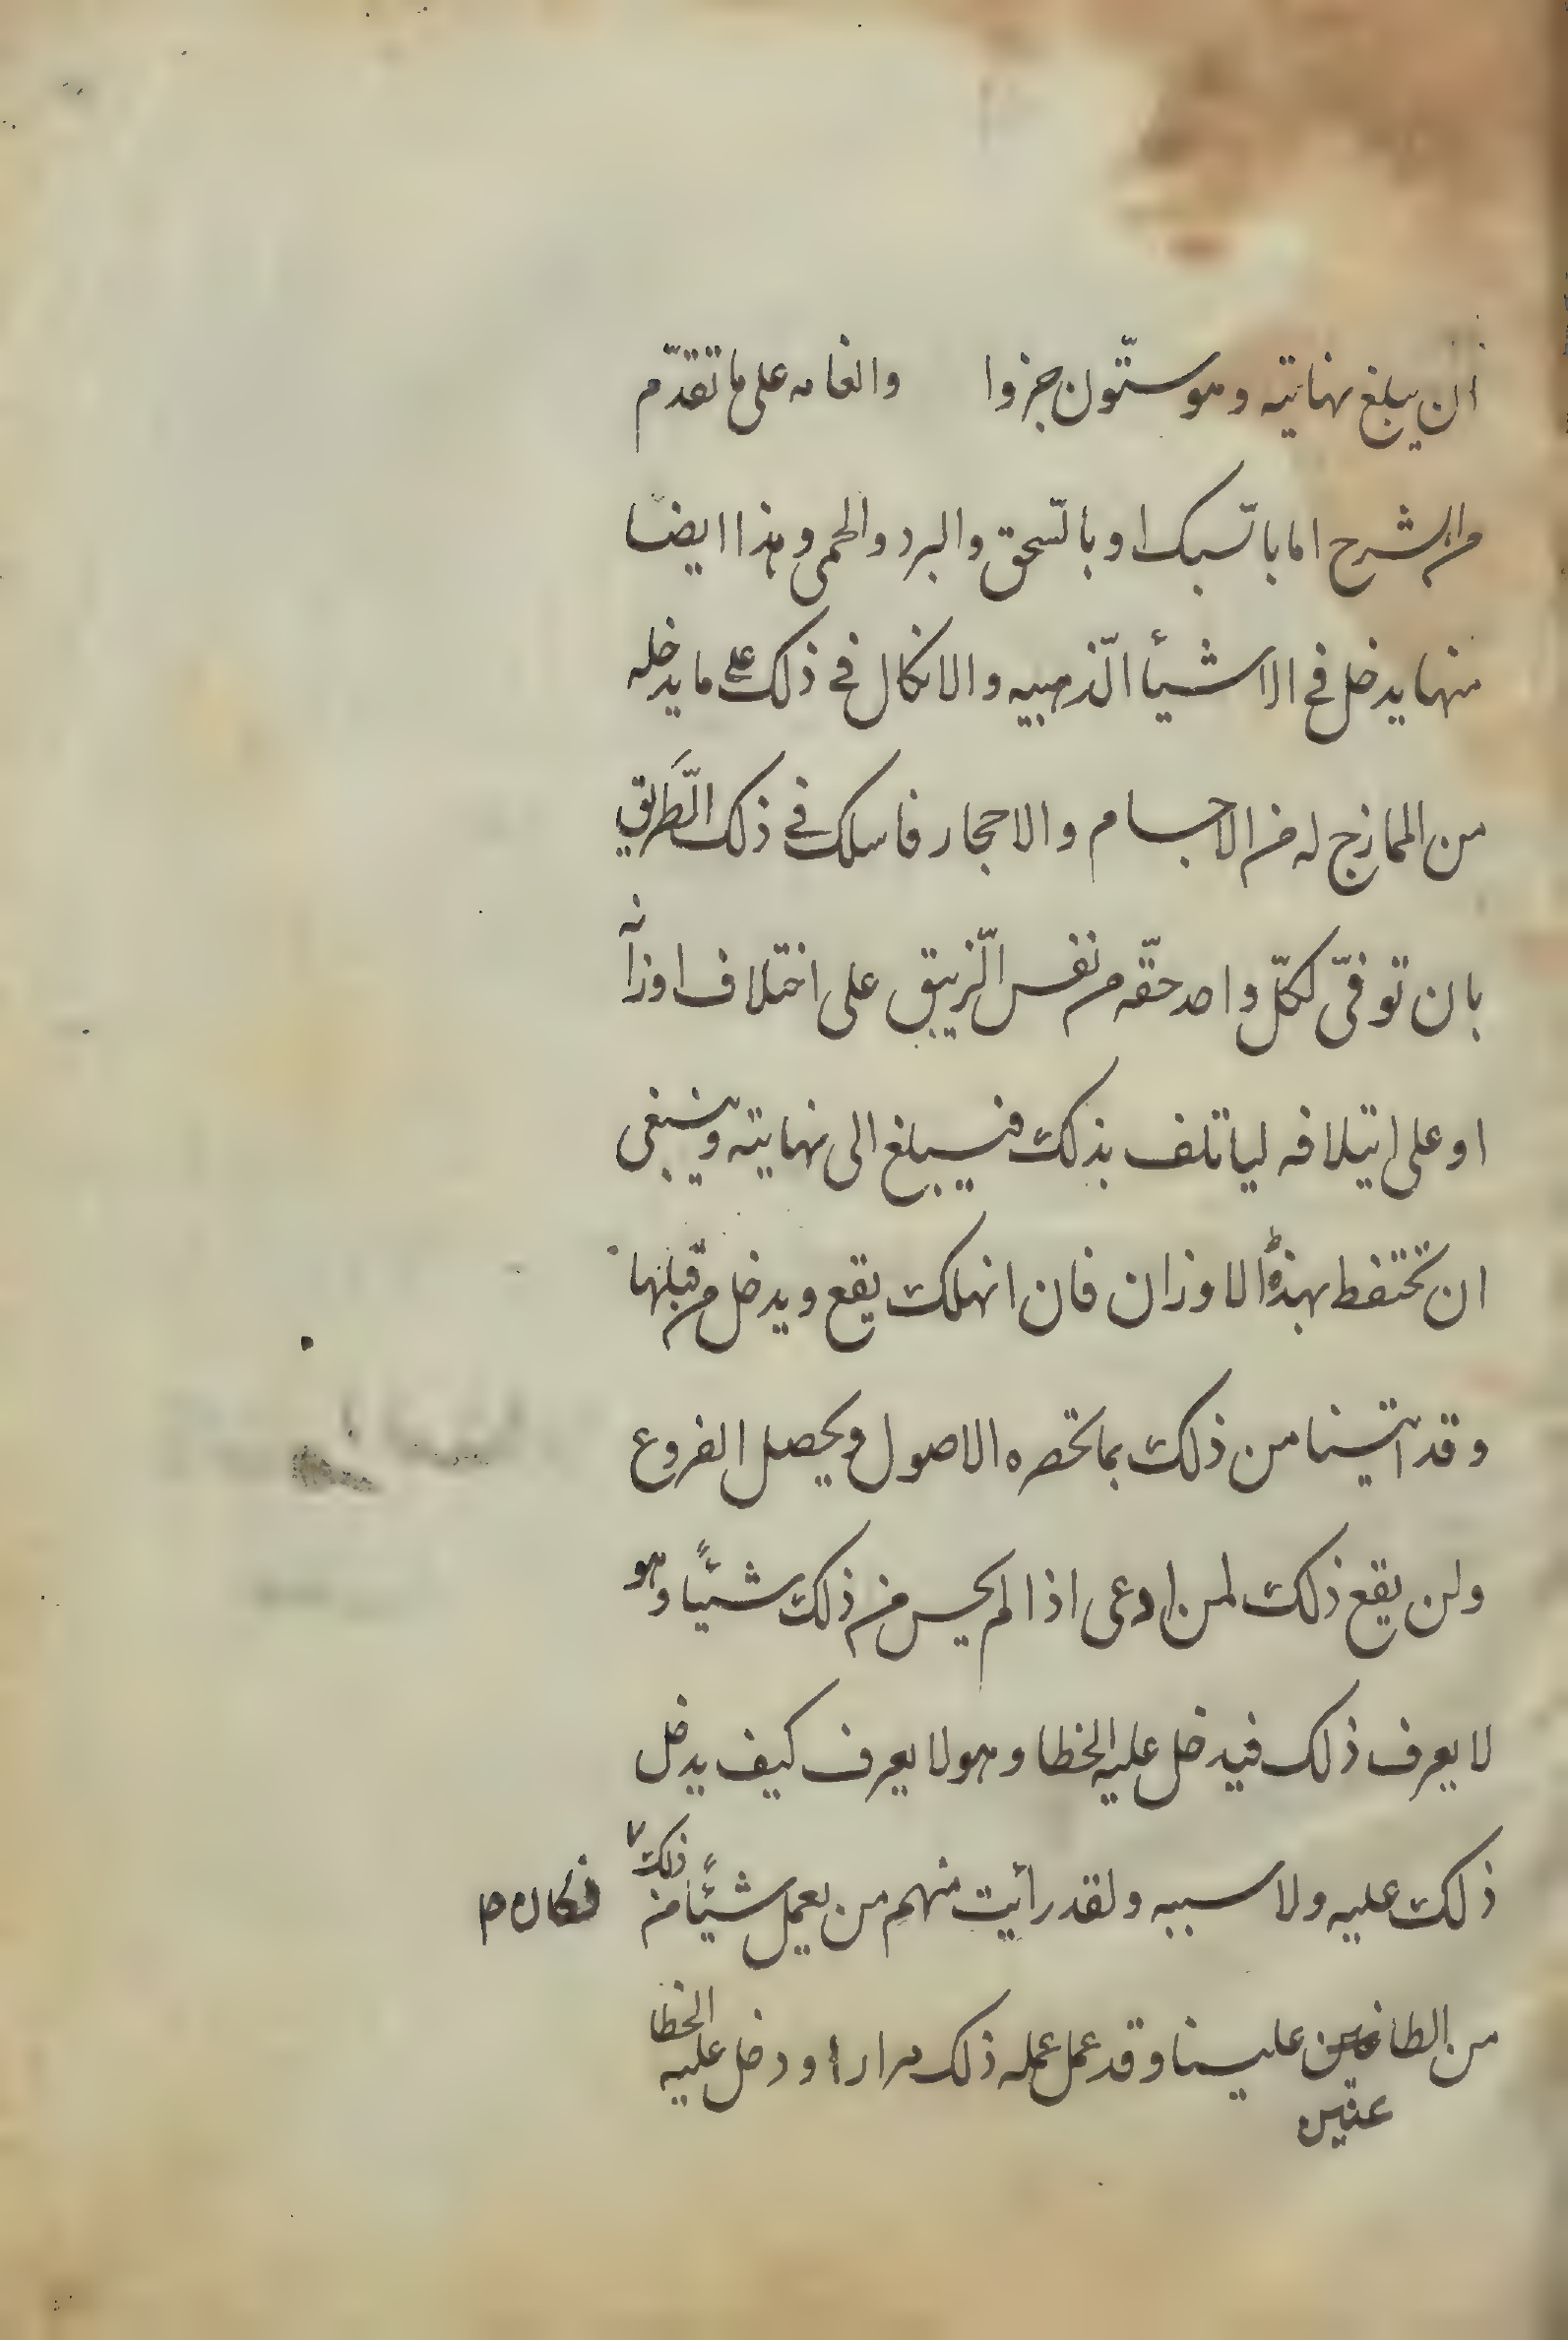 ان يبلغ نهايته وهو ستّون جزوا والغامه على ما تقدّم
من الشرح اما بالسّبك او بالسّحق والبرد والحمى وهذا ايضا
منها يدخل في الاشيأ الذّهبيه والاتكال في ذلك على ما يدخله
من الممازج له من الاجسام والاحجار فاسلك في ذلك الطَّريق
بان توفّى لكلّ واحد حقّه من نفس الزّيبق على اختلاف اوزانه
او على ايتلافه لياتلف بذلك فيبلغ الى نهايته وينبغى
ان تحتفظ بهذه الاوزان فان انهلك يقع ويدخل من قبلها
وقد اتينا من ذلك بما تحصره الاصول ويحصل الفروع
ولن يقع ذلك لمن ادعى اذا لم يحس من ذلك شيئًا وهو
لا يعرف ذلك فيدخل عليه الخطا وهو لا يعرف كيف يدخل
ذلك عليه ولا سببه ولقد رأيت منهم من يعمل شيئًا من ذلك
فكان
من الطاعنين علينا وقد عمل عمله ذلك مرارا ودخل عليه الخطا
عنين